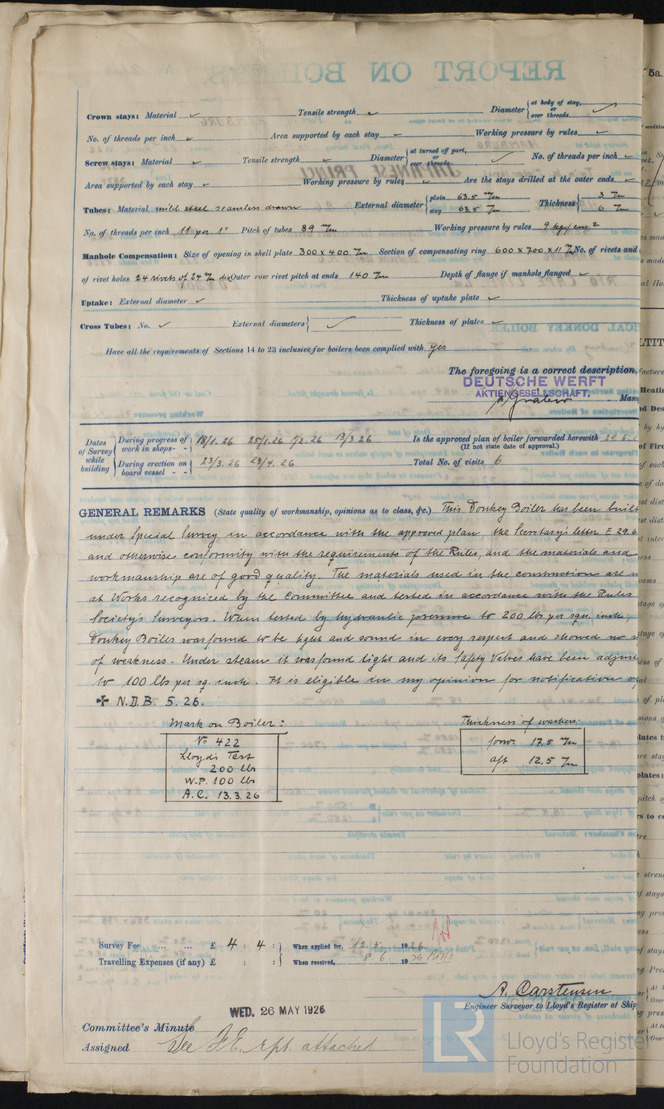 Crown stays: Material ✓ Tensile strength ✓ Diameter { at body of stay, or over threads ✓
No. of threads per inch ✓ Area supported by each stay ✓ Working pressure by rules ✓
Screw stays: Material ✓ Tensile strength ✓ Diameter { at turned off part, or over threads ✓ No. of threads per inch ✓
Area supported by each stay ✓ Working pressure by rules ✓ Are the stays drilled at the outer ends ✓
Tubes: Material mild steel seamless drawn External diameter { plain 63.5 m/m stay 63.5 m/m Thickness { 3 m/m 6 m/m
No. of threads per inch 11 per 1" Pitch of tubes 89 m/m Working pressure by rules 9 kgs/cm 2
Manhole Compensation: Size of opening in shell plate 300 x 400 m/m Section of compensating ring 600 x 700 x 11 m/m No. of rivets and
of rivet holes 24 rivets of 24 m/m dia Outer row rivet pitch at ends 140 m/m Depth of flange if manhole flanged ✓
Uptake: External diameter ✓ Thickness of uptake plate ✓
Cross Tubes: No. ✓ External diameters { ✓ Thickness of plates ✓
Have all the requirements of Sections 14 to 23 inclusive for boilers been complied with yes
The foregoing is a correct description,
DEUTSCHE WERFT
AKTIENGESELLSCHAFT.
Dates of Survey while building { During progress of work in shops - - 18/1.26 25/1.26 1/2.26 13/3.26 Is the approved plan of boiler forwarded herewith
(If not state date of approval.)
During erection on board vessel - - - 23/3.26 23/4.26 Total No. of visits 6
GENERAL REMARKS (State quality of workmanship, opinions as to class, &c.) This Donkey Boiler has been built
under Special Survey in accordance with the approved plan, the Secretary's letter E 29.6
and otherwise conformity with the requirements of the Rules, and the materials and
workmanship are of good quality. The materials used in the construction are
at Works recognized by the Committee and tested in accordance with the Rules
Society's Surveyors. When tested by hydraulic pressure to 200 lbs per sqr. inch,
Donkey Boiler was found to be tight and sound in every respect and showed no
of weakness. Under steam it was found tight and its Safety Valves have been adjust
to 100 lbs per sq. inch. It is eligible in my opinion for notification of
✠ N.D.B. 5.26.
Mark on Boiler:
No 422
Lloyds Test
200 lbs
W.P. 100 lbs
A.C. 13.3.26
Thickness of washers:
forw. 17.5 m/m
aft 12.5 m/m
Survey Fee ... ... £ 4 : 4 : When applied for, 12.5. 1926
Travelling Expenses (if any) £ : : When received, 8.6. 1926
A. Carstensen
Engineer Surveyor to Lloyd's Register of Ship
WED. 26 MAY 1926
Committee's Minute
Assigned See F.E. rpt. attached
LR Lloyd's Register
Foundation